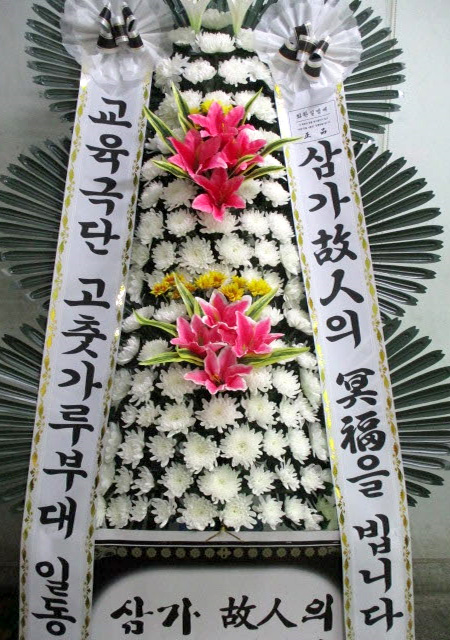 교육극단 고춧가루부대 일동
삼가 故人의 冥福을 빕니다
正品
삼가 故人의